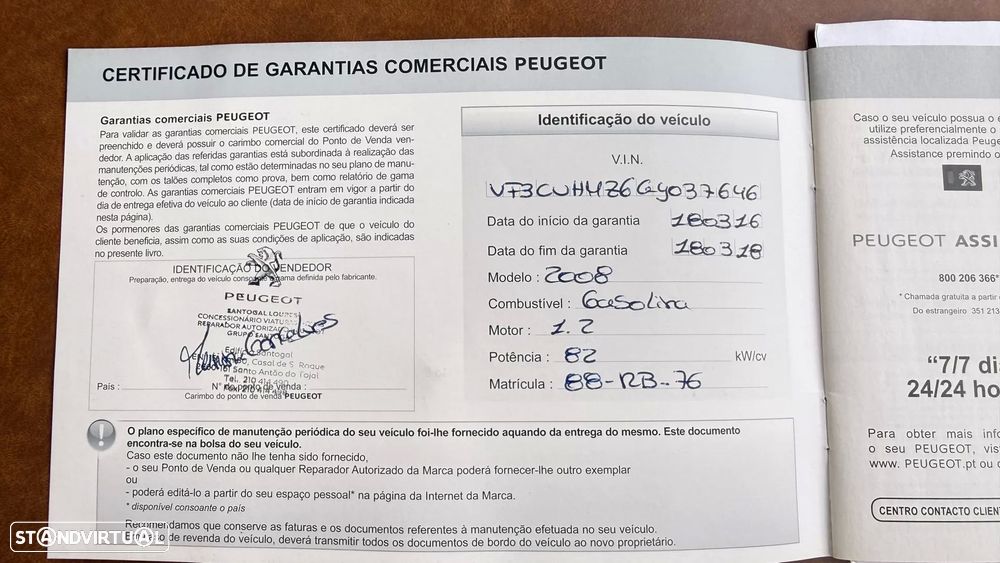 CERTIFICADO DE GARANTIAS COMERCIAIS PEUGEOT
Garantias comerciais PEUGEOT
Para validar as garantias comerciais PEUGEOT, este certificado deverá ser
preenchido e deverá possuir o carimbo comercial do Ponto de Venda ven-
dedor. A aplicação das referidas garantias está subordinada à realização das
manutenções periódicas, tal como estão determinadas no seu plano de manu-
tenção, com os talões completos como prova, bem como relatório de gama
de controlo. As garantias comerciais PEUGEOT entram em vigor a partir do
dia de entrega efetiva do veículo ao cliente (data de início de garantia indicada
nesta página).
Os pormenores das garantias comerciais PEUGEOT de que o veículo do
cliente beneficia, assim como as suas condições de aplicação, são indicadas
no presente livro.
IDENTIFICAÇÃO DO VENDEDOR
Preparação, entrega do veículo consoante gama definida pelo fabricante.
PEUGEOT
SANTOGAL LOURES
CONCESSIONÁRIO VIATURAS
REPARADOR AUTORIZADO
GRUPO SANTOGAL
Edifício Santogal
Casal de S. Roque
Santo Antão do Tojal
Tel. 210 414 490
País :
Nº do ponto de venda :
Carimbo do ponto de venda PEUGEOT
Identificação do veículo
V.I.N.
VF3CUHMZ6GY037646
Data do início da garantia 180316
Data do fim da garantia 180318
Modelo : 2008
Combustível : Gasolina
Motor : 1.2
Potência : 82 kW/cv
Matrícula : 88-RB-76
O plano específico de manutenção periódica do seu veículo foi-lhe fornecido aquando da entrega do mesmo. Este documento
encontra-se na bolsa do seu veículo.
Caso este documento não lhe tenha sido fornecido,
- o seu Ponto de Venda ou qualquer Reparador Autorizado da Marca poderá fornecer-lhe outro exemplar
ou
- poderá editá-lo a partir do seu espaço pessoal* na página da Internet da Marca.
* disponível consoante o país
Recomendamos que conserve as faturas e os documentos referentes à manutenção efetuada no seu veículo.
Em caso de revenda do veículo, deverá transmitir todos os documentos de bordo do veículo ao novo proprietário.
Caso o seu veículo possua o
utilize preferencialmente o
assistência localizada Peuge
Assistance premindo o
PEUGEOT ASSI
800 206 366*
* Chamada gratuita a partir
Do estrangeiro 351 213
"7/7 di
24/24 ho
Para obter mais info
o seu PEUGEOT, vis
www. PEUGEOT.pt ou
CENTRO CONTACTO CLIEN
STANDVIRTUAL